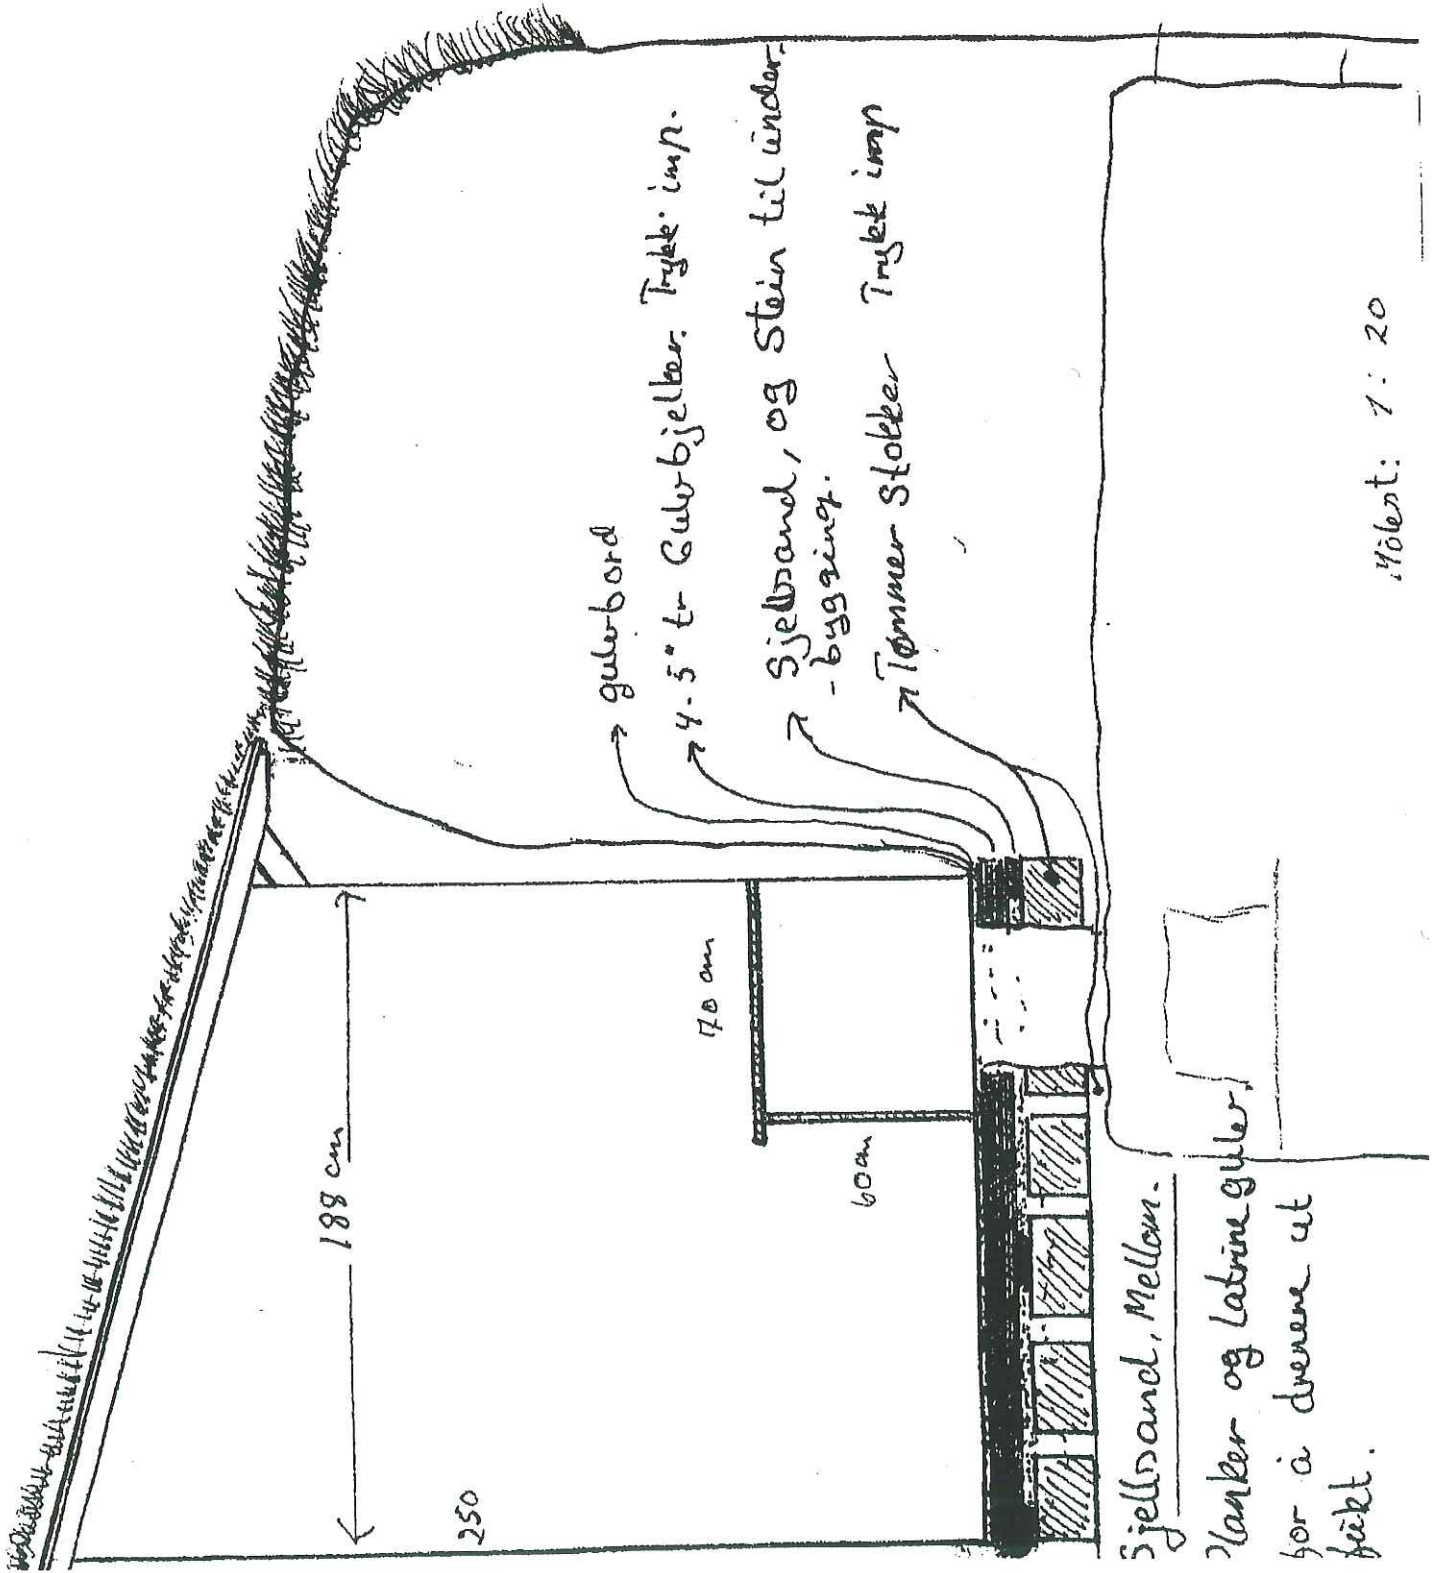 188 cm
250
70 cm
60 cm
gulvbord
4-5" tr Gulvbjelker. Trykk. imp.
Sjellsand, og Stein til under-
-bygging.
Tømmer Stokker Trykk imp
Sjellsand, Mellom.
Planker og Latrinegulv,
for å drenere ut
fukt.
Målest: 1:20